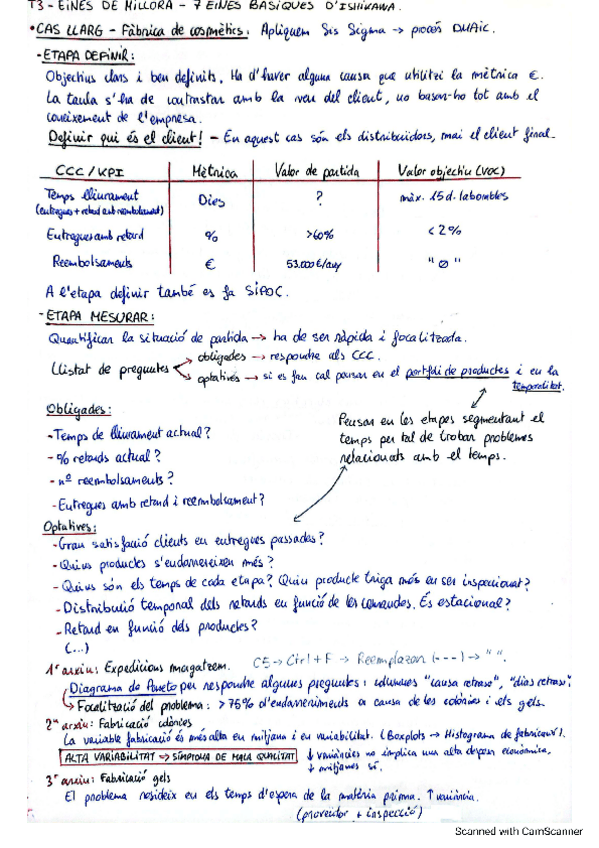 T3 - EINES DE MILLORA - 7 EINES BÀSIQUES D'ISHIKAWA.
• CAS LLARG - Fàbrica de cosmètics: Apliquem Sis Sigma → procés DMAIC.
- ETAPA DEFINIR:
Objectius clars i ben definits. Ha d'haver alguna causa que utilitzi la mètrica €.
La taula s'ha de contrastar amb la veu del client, no basar-ho tot amb el
coneixement de l'empresa.
Definir qui és el client! - En aquest cas són els distribuïdors, mai el client final.
CCC / KPI Mètrica Valor de partida Valor objectiu (VOC)
Temps lliurament Dies ? màx. 15 d. laborables
(entregues + retard amb reemborsament)
Entregues amb retard % >60% <2%
Reembolsaments € 53.000€/any "0"
A l'etapa definir també es fa SIPOC.
- ETAPA MESURAR:
Quantificar la situació de partida → ha de ser ràpida i focalitzada.
Llistat de preguntes
obligades → respondre als CCC.
optatives → si es fan cal pensar en el portfoli de productes i en la
temporalitat.
Obligades:
- Temps de lliurament actual?
- % retards actual?
- nº reembolsaments?
- Entregues amb retard i reemborsament?
Pensar en les etapes segmentant el
temps per tal de trobar problemes
relacionats amb el temps.
Optatives:
- Grau satisfació clients en entregues passades?
- Quins productes s'endarrereixen més?
- Quins són els temps de cada etapa? Quin producte triga més en ser inspecionat?
- Distribució temporal dels retards en funció de les comandes. És estacional?
- Retard en funció dels productes?
(...)
1r arxiu: Expedicions magatzem. CE → Ctrl + F → Reemplazar (---) → " ".
Diagrama de Pareto per respondre algunes preguntes: columnes "causa retraso", "días retraso".
Focalització del problema: >75% d'endarreriments a causa de les colònies i els gels.
2n arxiu: Fabricació colònies
La variable fabricació és més alta en mitjana i en variabilitat. (Boxplots → Histograma de fabricació!).
ALTA VARIABILITAT → SÍMPTOMA DE MALA QUALITAT
↓ variàncies no implica una alta despesa econòmica,
↓ mitjanes sí.
3r arxiu: Fabricació gels
El problema resideix en els temps d'espera de la matèria prima. ↑ variància.
(proveïdor + inspecció)
Scanned with CamScanner